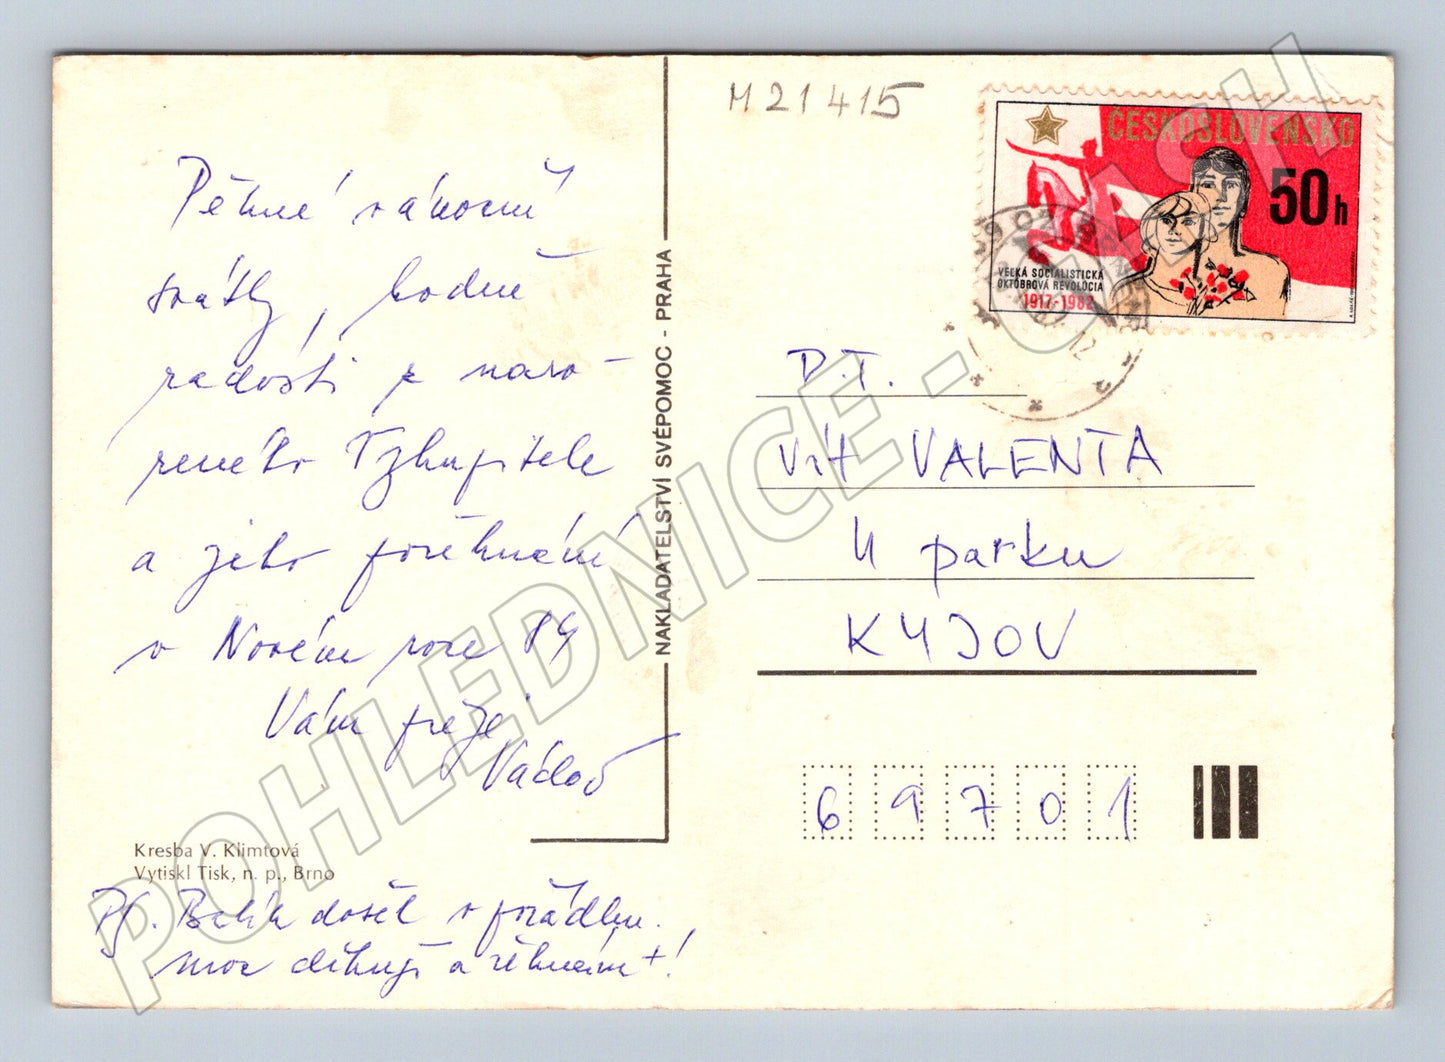 M21415
ČESKOSLOVENSKO
50h
VEĽKÁ SOCIALISTICKÁ
OKTÓBROVÁ REVOLÚCIA
1917-1982
Pěkné vánoční
svátky, hodně
radosti z naro-
zeného Vykupitele
a jeho požehnání
v Novém roce 84
Vám přeje
NAKLADATELSTVÍ SVÉPOMOC - PRAHA
D.T.
Vít VALENTA
U parku
KYJOV
69701
Kresba V. Klimtová
Vytiskl Tisk, n. p., Brno
PS. Balík došel v pořádku.
moc děkuji a žehnám +!
POHLEDNICE - CASH